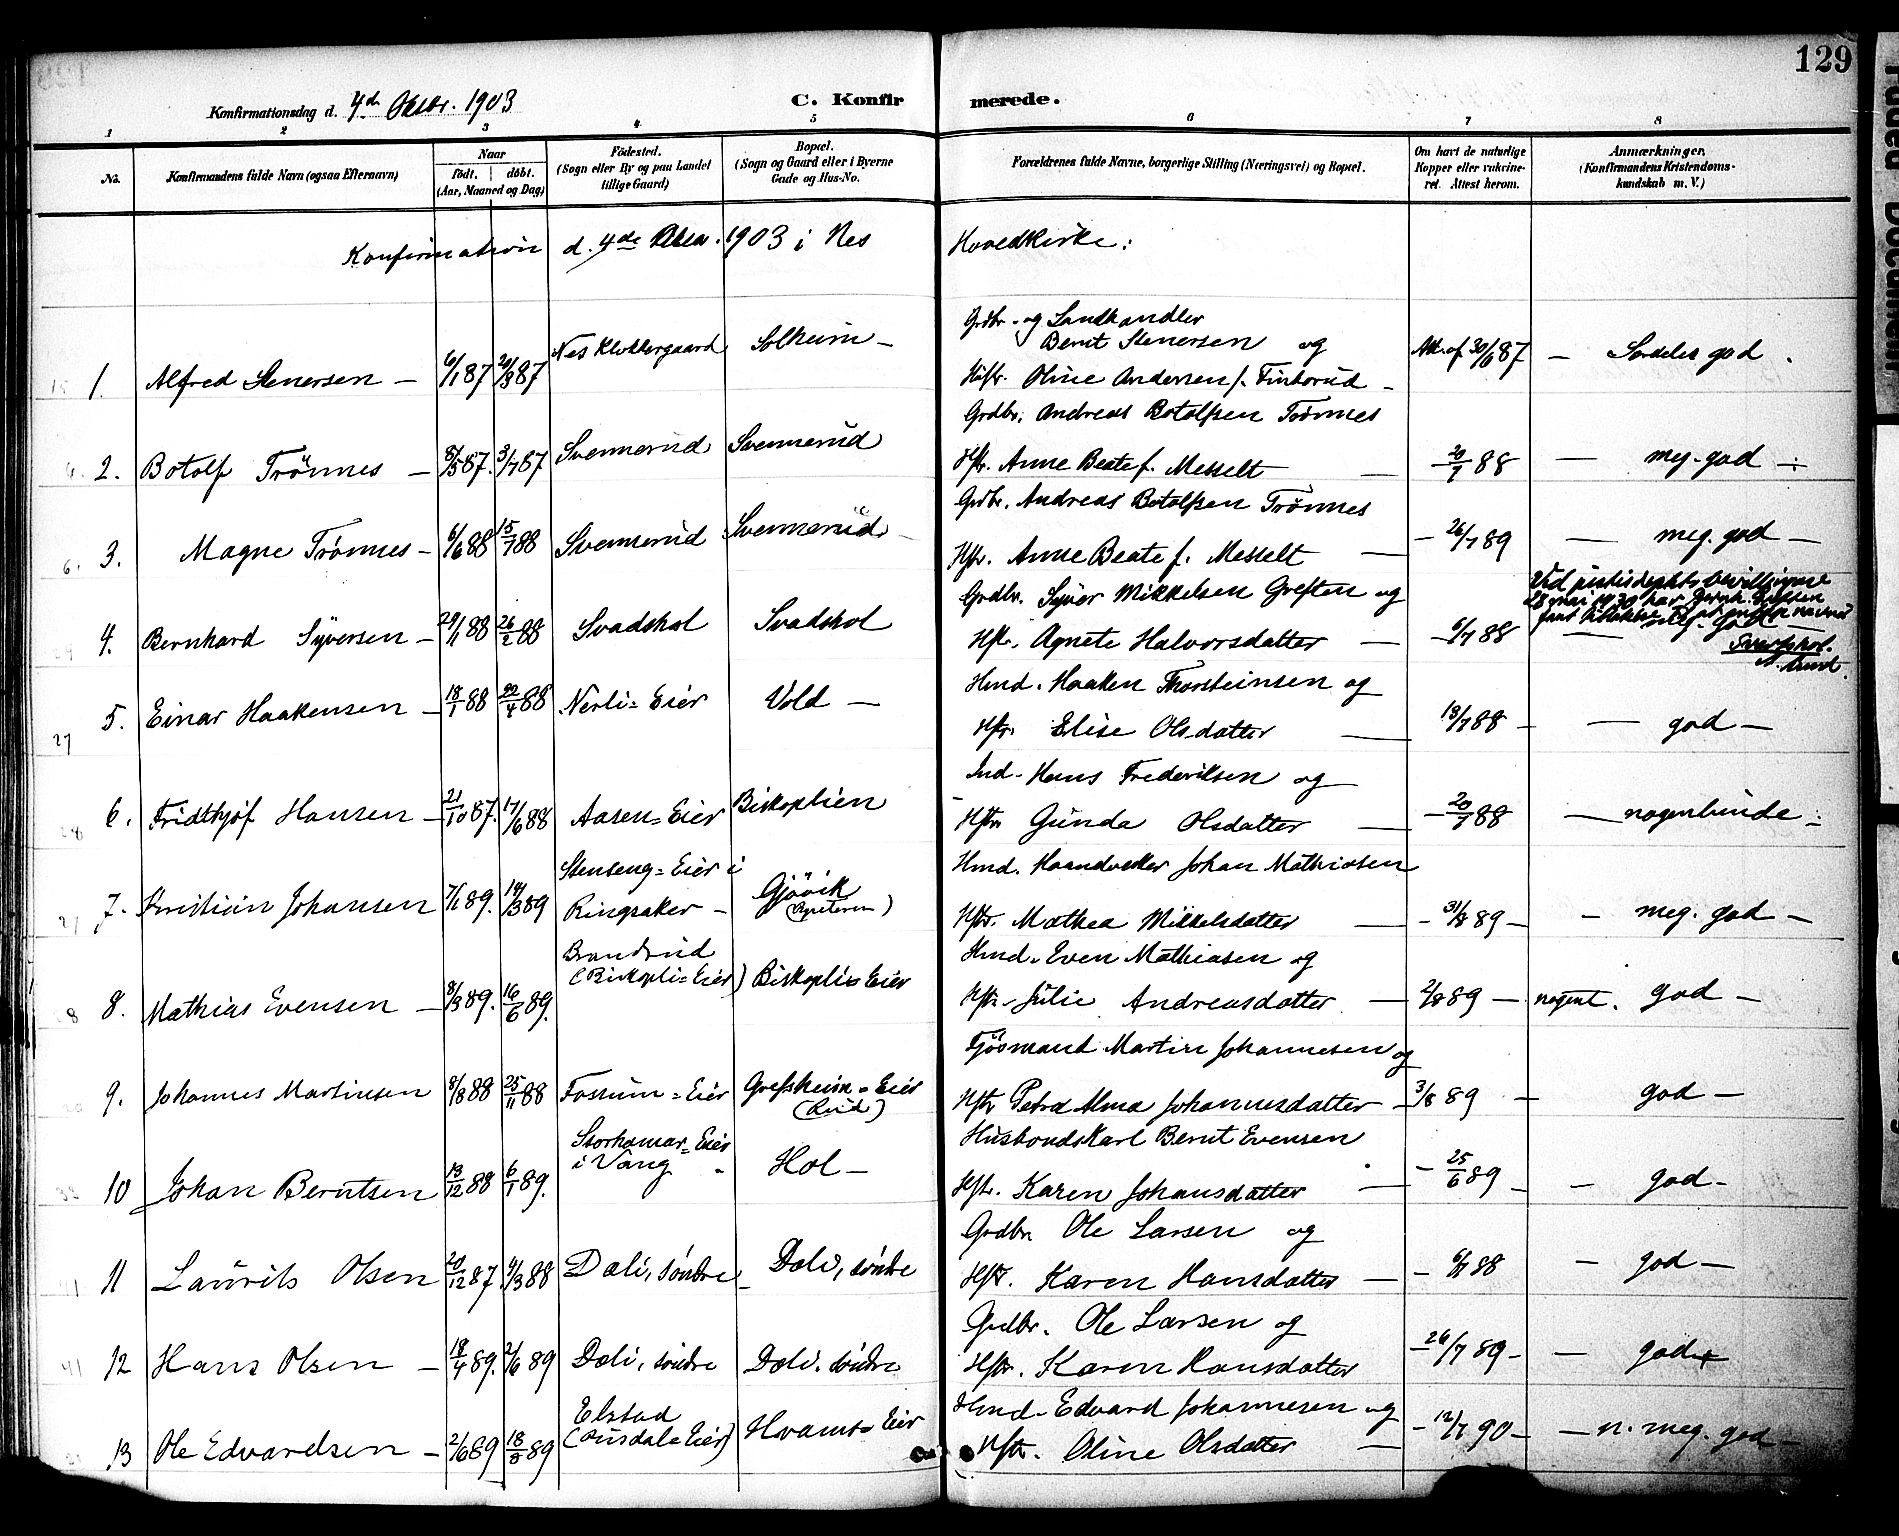 129
Konfirmationsdag d. 4de Oktbr. 1903
C. Konfirmerede.
1 2 3 4 5 6 7 8
No.
Konfirmandens fulde Navn (ogsaa Efternavn)
Naar
födt. döbt.
(Aar, Maaned og Dag)
Födested.
(Sogn eller By og paa Landet
tillige Gaard)
Bopæl.
(Sogn og Gaard eller i Byerne
Gade og Hus-No.
Forældrenes fulde Navne, borgerlige Stilling (Næringsvei) og Bopæl.
Om havt de naturlige
Kopper eller vakcine-
ret. Attest herom.
Anmærkninger.
(Konfirmandens Kristendoms-
kundskab m. V.)
Konfirmation d. 4de Oktbr. 1903 i Nes Hovedkirke:
Grdbr. og Landhandler
Bernt Stenersen og
1. Alfred Stenersen — 6/1 87 20/3 87 Nes Klokkergaard Solheim — Hustr. Oline Andersen f. Finborud — Att. af 30/6 87 — Særdeles god.
Grdbr. Andreas Botolfsen Trönnes
2. Botolf Trönnes — 8/5 87. 3/7 87 Svennerud Svennerud Hstr. Anne Beate f. Messelt — 20/7 88 — meg. god —
Grdbr. Andreas Botolfsen Trönnes
3. Magne Trönnes — 6/6 88 15/7 88 Svennerud Svennerud — Hstr. Anne Beate f. Messelt — 26/7 89 — meg. god —
Grdbr. Syver Mikkelsen Greften og
Ved justisdepts bevillning
28 mai 1930 har Bernh.
navnet
4. Bernhard Syversen — 29/1 88 26/2 88 Svadskol Svadskol Hstr. Agnete Halvorsdatter — 6/7 88 —
Hmd. Haaken Thorsteinsen og
5. Einar Haakensen — 18/1 88 22/4 88 Nerli-Eier Vold — Hstr. Elise Olsdatter — 18/7 88 — god —
Ind. Hans Frederiksen og
6. Fridthjof Hansen — 21/10 87. 17/6 88 Aasen-Eier Biskoplien Hstr. Gunda Olsdatter — 20/7 88 — nogenlunde —
Hmd. Haandverker Johan Mathiasen
7. Kristian Johansen 7/1 89. 14/3 89 Stenseng-Eier i Ringsaker — Gjövik Hstr. Mathea Mikkelsdatter — 31/8 89 — meg. god —
Hmd. Even Mathiasen og
8. Mathias Evensen — 8/3 89. 16/6 89. Brandrud (Biskopli-Eier) Biskopli-Eier Hstr. Julie Andreasdatter — 2/8 89 — nogenl. god —
Fjösmand Martin Johannesen og
9. Johannes Martinsen 8/8 88 25/11 88 Fossum-Eier Grefsheim-Eier (Rud) Hstr. Petra Alma Johannesdatter — 3/8 89 — god —
Husbondskarl Bernt Evensen
10 Johan Berntsen 13/12 88 6/1 89. Storhamar-Eier i Vang Hol — Hstr. Karen Johansdatter — 25/6 89 — god —
Grdbr. Ole Larsen og
11 Laurits Olsen 20/12 87 4/3 88 Dæli, söndre Dæli, söndre Hstr. Karen Hansdatter — 6/7 88 — god —
Grdbr. Ole Larsen og
12 Hans Olsen — 18/4 89. 2/6 89 Dæli, söndre Dæli, söndre Hstr. Karen Hansdatter — 26/7 89 — god
Hmd. Edvard Johannesen og
13 Ole Edvardsen — 2/6 89 18/8 89 Elstad Hvams-Eier Hstr. Oline Olsdatter — 12/7 90 — n. meg. god —